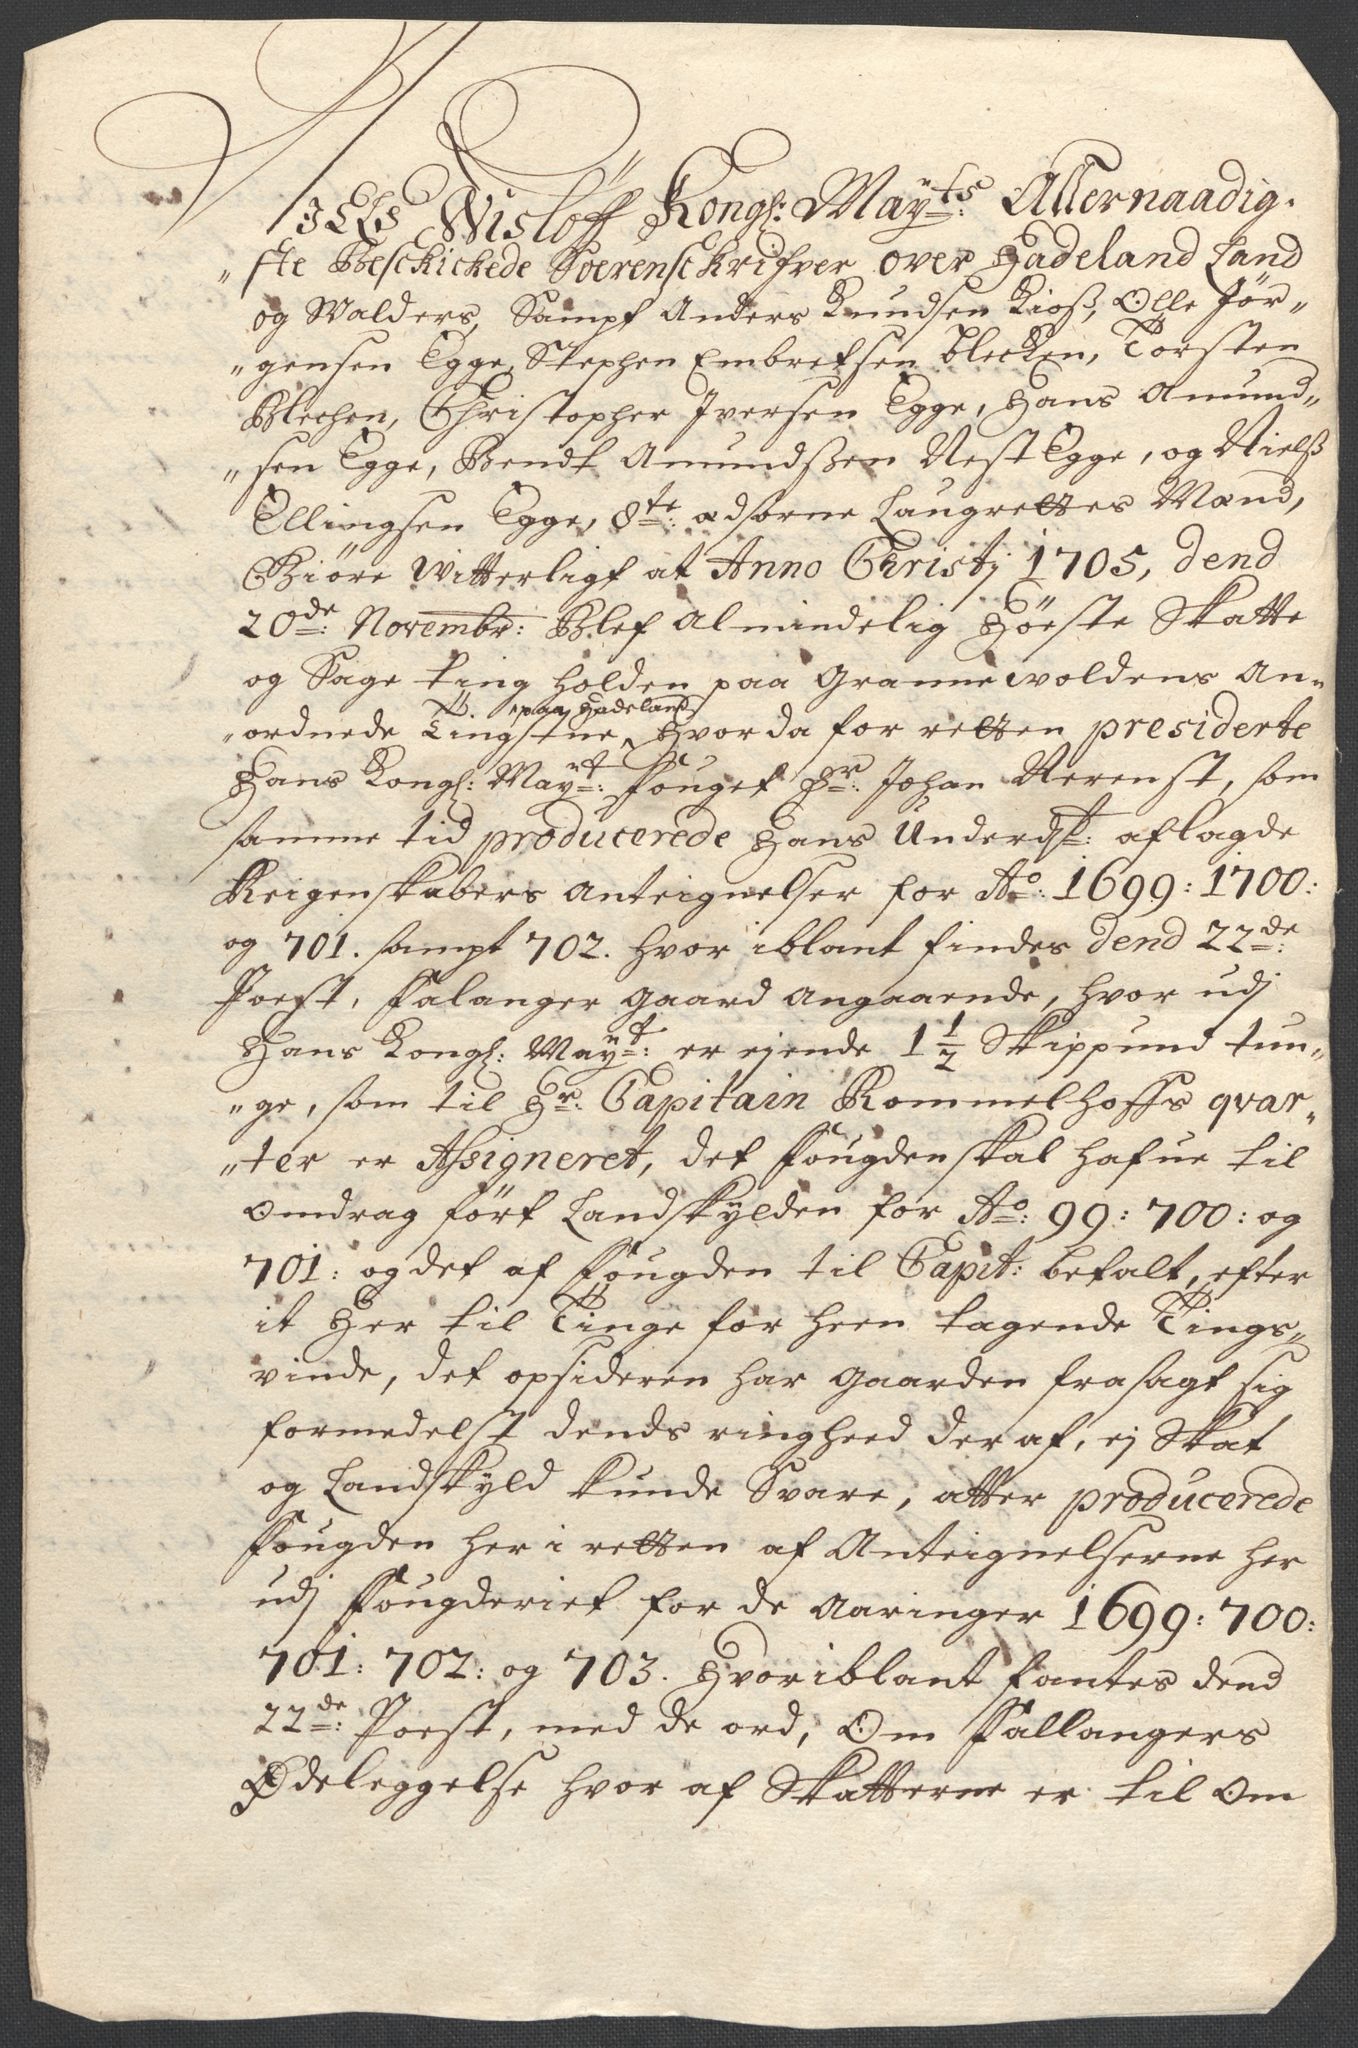 Niels Wisløff Kongl: Mayts: Allernaadig-
"ste Beschickede Soerenschrifver over Hadeland Land
og Walders, Sampt Anders Knudsen Kioß, Olle Jør-
"gensen Egge, Stephen Embretsen Blecken, Torsten
Blechen, Christopher Iversen Egge, Hans Amund-
"sen Egge, Bendt Amundßen NestEgge, og Nielß
Ellingsen Egge, 8te: Edsorne Laugrettes Mænd,
Giöre Witterligt at Anno Christj 1705, dend
20de: Novembr: Blef Almindelig Höeste Skatte
og Sage ting holden paa Grannewoldens An-
"ordnede Tingstue paa Hadeland, Hvor da for retten presiderte
Hans Kongl: Mayt: Fouget Hr: Johan Nerenst, som
samme tid producerede Hans Underdt: aflagde
Reigenskabers Anteignelser for Ao: 1699: 1700:
og 701. sampt 702. hvor iblant findes dend 22de:
Poest, Falanger gaard Angaaende, hvor udj
Hans Kongl: Mayt: er ejende 1½ Skippund tun-
"ge, som til Hr: Capitain Rommelhoffs qvar-
"ter er Assigneret, det Fougden skal hafue til
Omdrag fört Landskylden for Ao: 99: 700: og
701: og det af Fougden til Capit: betalt, efter
it Her til Tinge for heen tagende Tings-
vinde, det opsideren har gaarden frasagt sig
formedelst dends ringheed der af, ej Skat
og Landskyld kunde Svare, atter producerede
Fougden her i retten af Anteignelserne her
udj Fougderiet for de Aaringer 1699: 700:
701: 702: og 703. Hvoriblant fantes dend
22de: Poest, med de ord, Om Fallangers
Ødeleggelse hvor af Skatterne er til Om